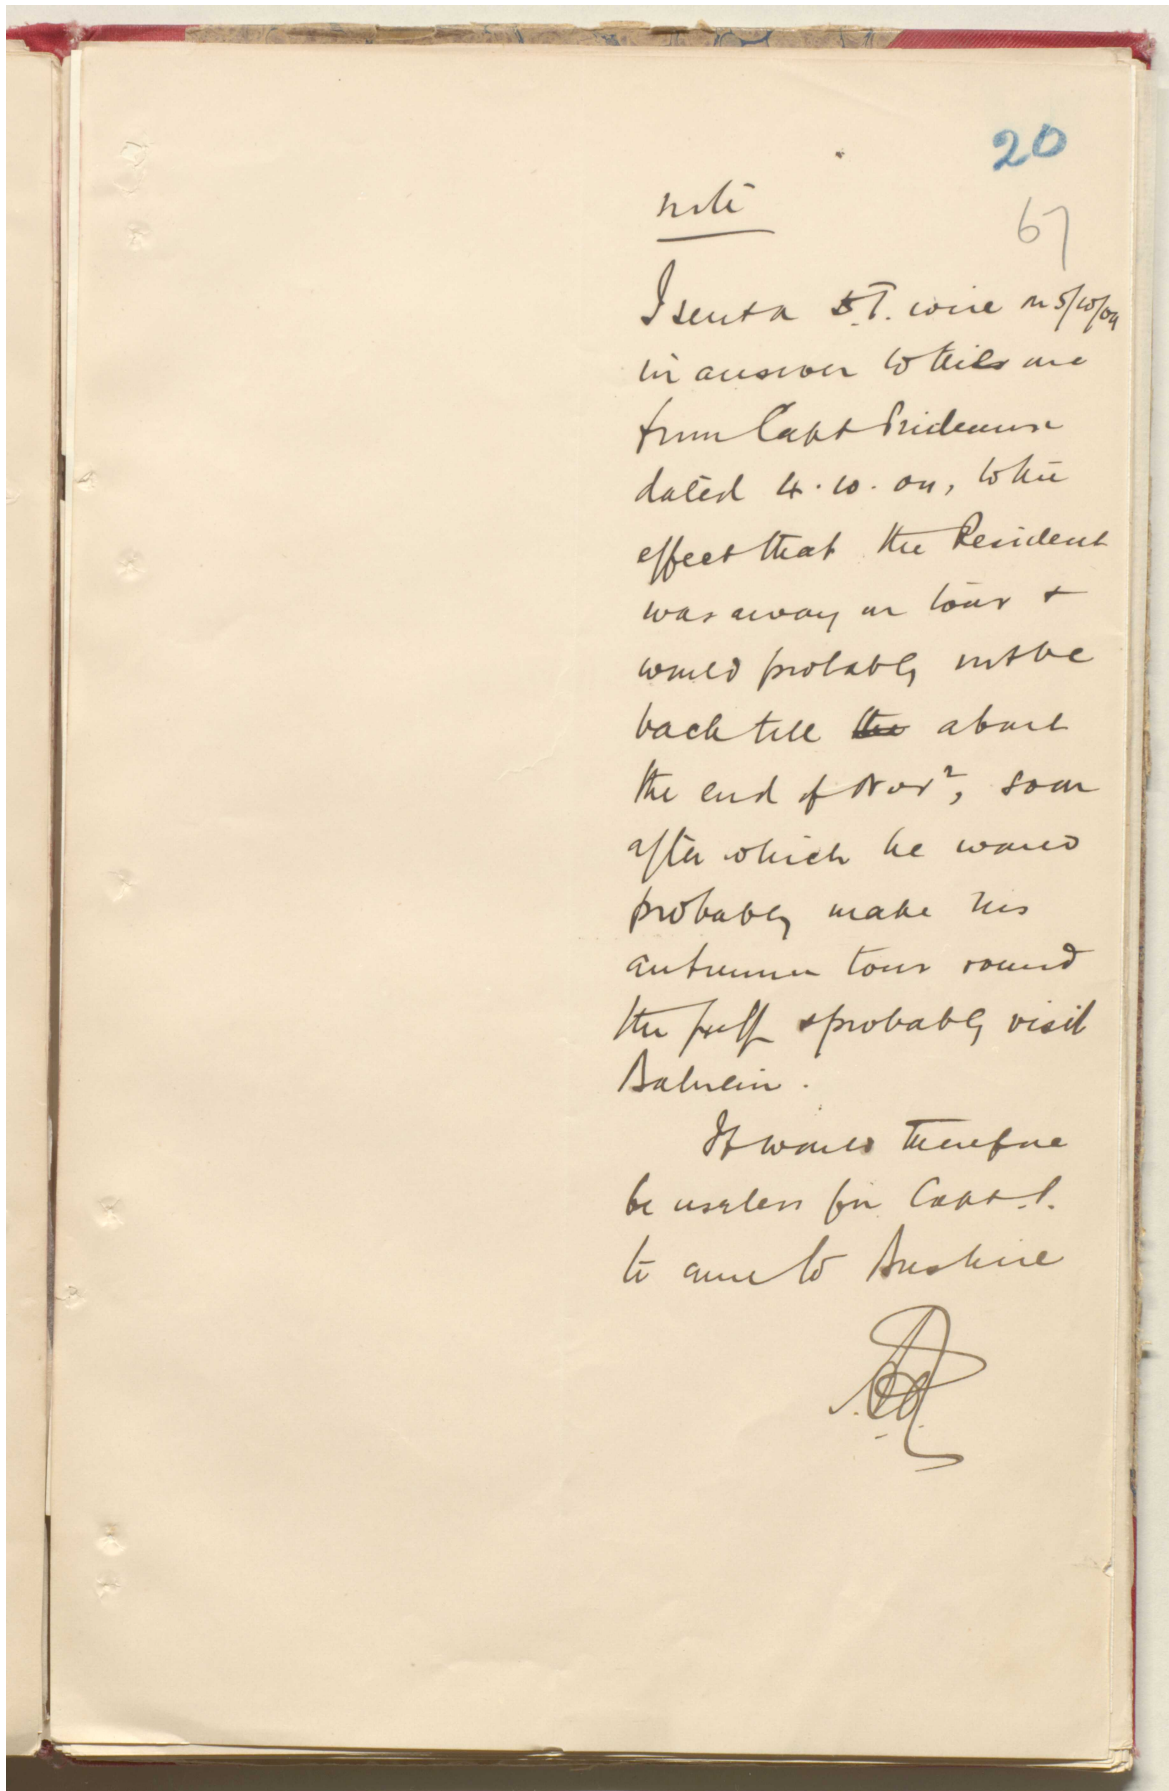 20
67
Note
I sent a T. wire on 5/10/04
in answer to this one
from Capt Prideaux
dated 4.10.04, to the
effect that the Resident
was away on tour &
would probably not be
back till the about
the end of Novr, soon
after which he would
probably make his
autumn tour round
the gulf & probably visit
Bahrein.
It would therefore
be useless for Capt. P.
to come to Bushire